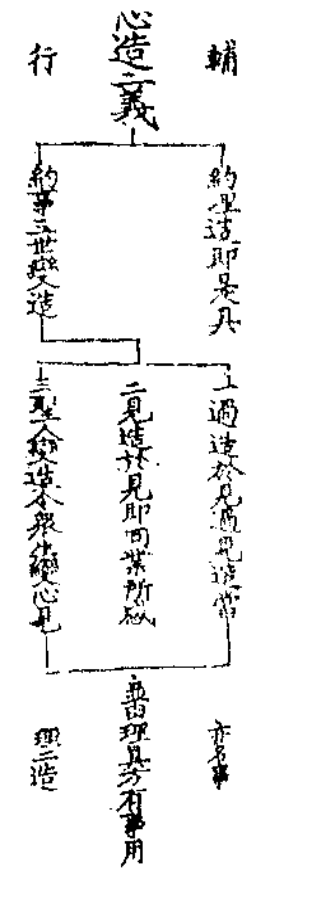 輔
心造二義
行
約理造即是具
約事三世變造
一過造於見過見造當
二見造於見即同業所感
三聖人變造令衆生變心見
並由理具方有事用
亦名事
理二造